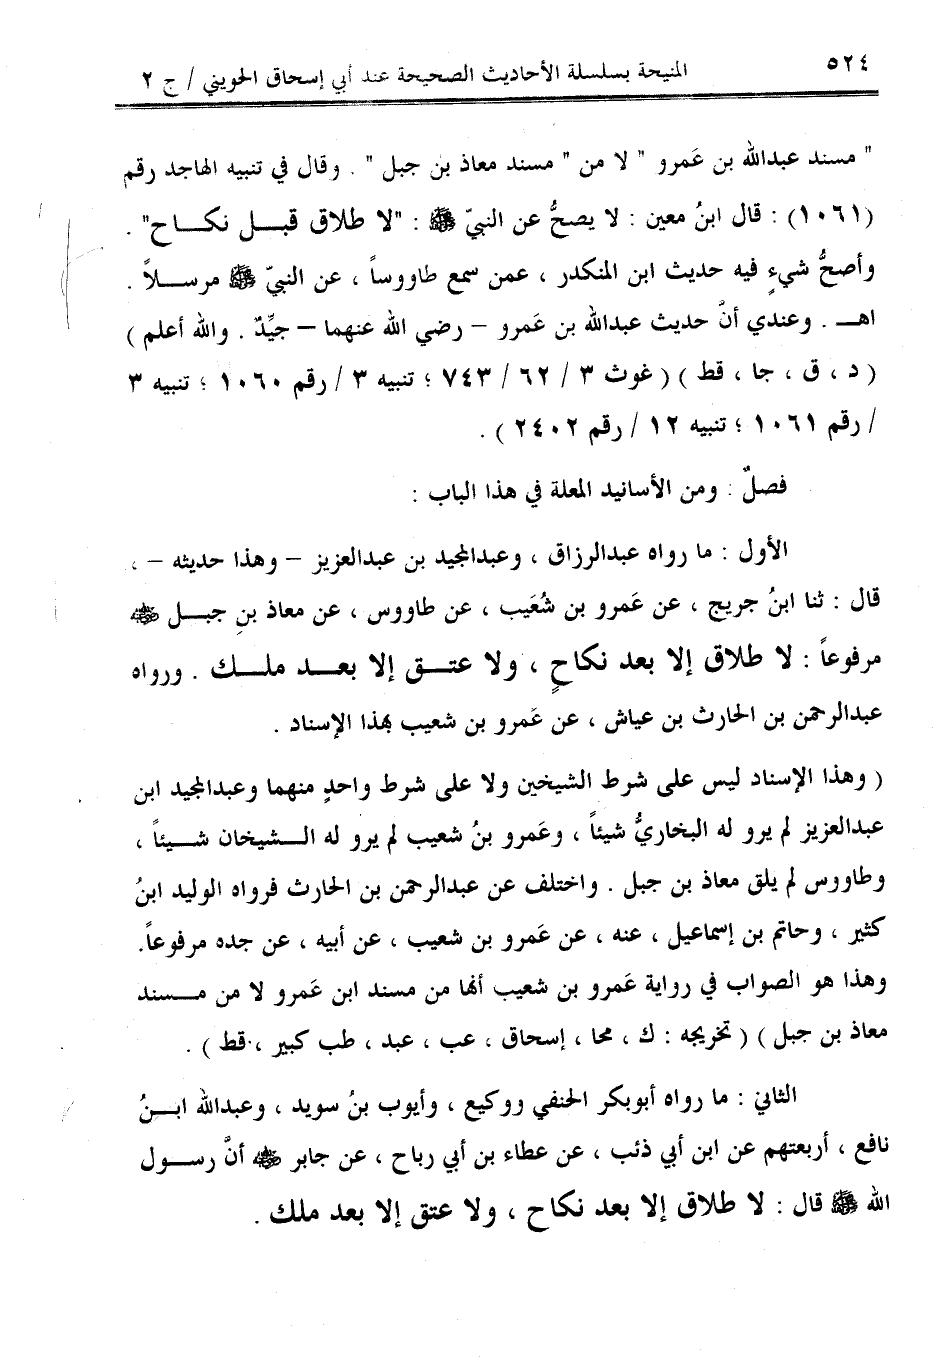 ٥٢٤
المنيحة بسلسلة الأحاديث الصحيحة عند أبي إسحاق الحويني / ج ٢
" مسند عبدالله بن عَمرو " لا من " مسند معاذ بن جبل " . وقال في تنبيه الهاجد رقم
(١٠٦١) : قال ابنُ معين : لا يصحُّ عن النبيّ ﷺ : "لا طلاق قبـل نكـــاح" .
وأصحُّ شيءٍ فيه حديث ابن المنكدر ، عمن سمع طاووساً ، عن النبيّ ﷺ مرســلاً .
اهـ . وعندي أنَّ حديث عبدالله بن عَمرو – رضي الله عنهما – جيِّدٌ . والله أعلم )
( د ، ق ، جا ، قط ) ( غوث ٣ / ٦٢ / ٧٤٣ ؛ تنبيه ٣ / رقم ١٠٦٠ ؛ تنبيه ٣
/ رقم ١٠٦١ ؛ تنبيه ١٢ / رقم ٢٤٠٢ ) .
فصلٌ : ومن الأسانيد المعلة في هذا الباب :
الأول : ما رواه عبدالرزاق ، وعبدالمجيد بن عبدالعزيز – وهذا حديثه – ،
قال : ثنا ابنُ جريج ، عن عَمرو بن شُعَيب ، عن طاووس ، عن معاذ بنِ جبــل ﷺ
مرفوعاً : لا طلاق إلا بعد نكاحٍ ، ولا عتــق إلا بعــد ملــك . ورواه
عبدالرحمن بن الحارث بن عياش ، عن عَمرو بن شعيب بهذا الإسناد .
( وهذا الإسناد ليس على شرط الشيخين ولا على شرط واحدٍ منهما وعبدالمجيد ابن
عبدالعزيز لم يرو له البخاريُّ شيئاً ، وعَمرو بنُ شعيب لم يرو له الــشيخان شــيئاً ،
وطاووس لم يلق معاذ بن جبل . واختلف عن عبدالرحمن بن الحارث فرواه الوليد ابنُ
كثير ، وحاتم بن إسماعيل ، عنه ، عن عَمرو بن شعيب ، عن أبيه ، عن جده مرفوعاً.
وهذا هو الصواب في رواية عَمرو بن شعيب أنها من مسند ابن عَمرو لا من مــسند
معاذ بن جبل ) ( تخريجه : ك ، محا ، إسحاق ، عب ، عبد ، طب كبير ، قط ) .
الثاني : ما رواه أبوبكر الحنفي ووكيع ، وأيوب بنُ سويد ، وعبدالله ابــنُ
نافع ، أربعتهم عن ابن أبي ذئب ، عن عطاء بن أبي رباح ، عن جابر ﷺ أنَّ رســول
الله ﷺ قال : لا طلاق إلا بعد نكاح ، ولا عتق إلا بعد ملك .